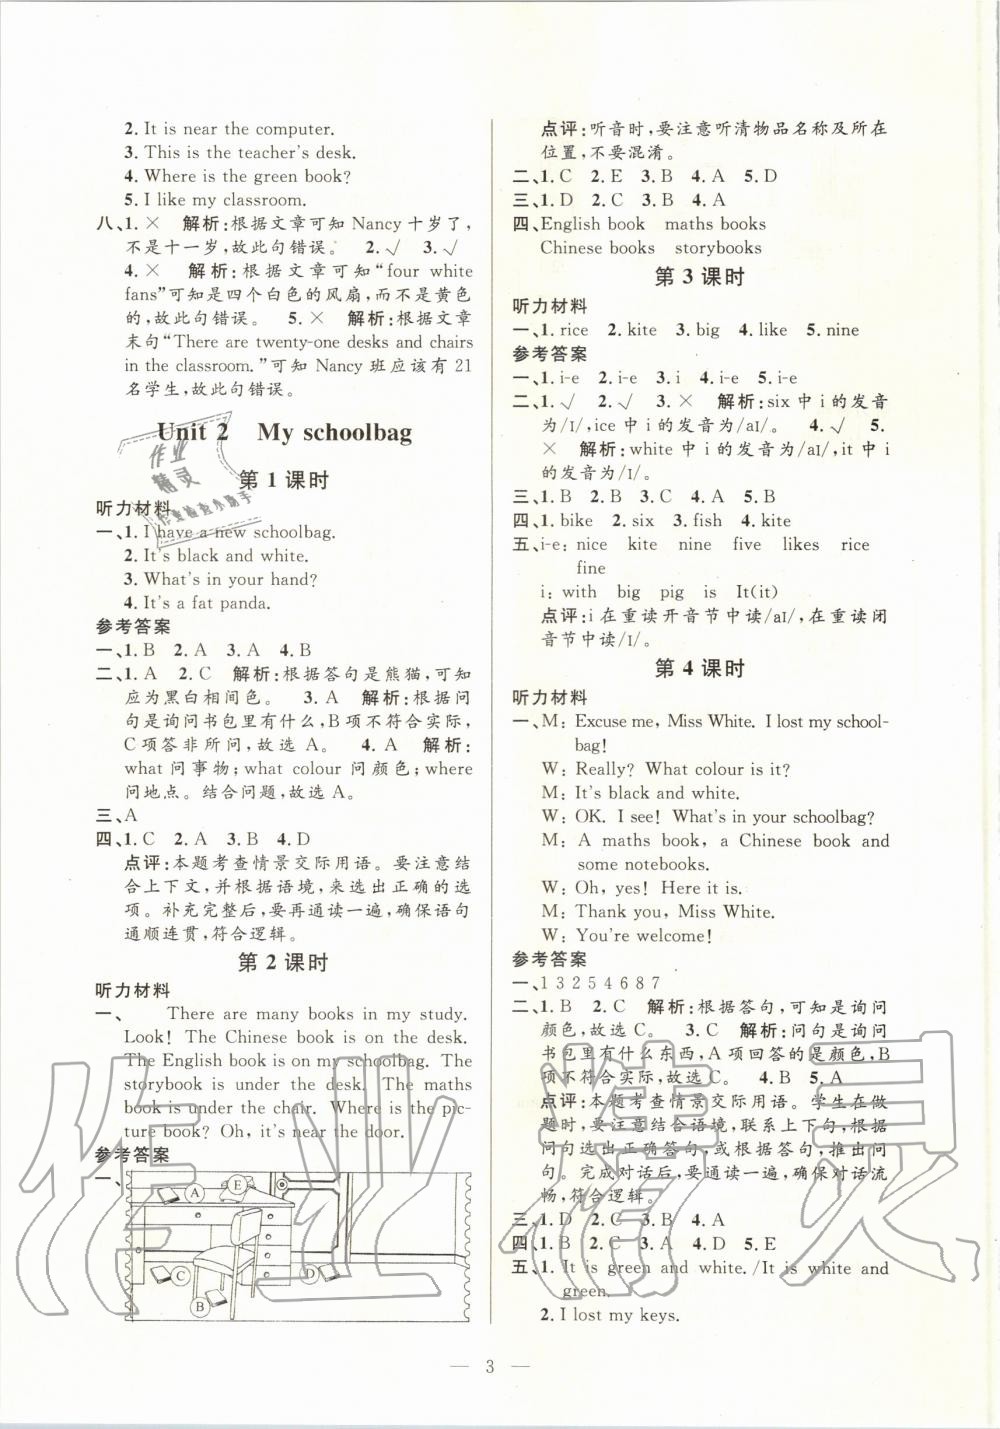 2. It is near the computer.
3. This is the teacher's desk.
4. Where is the green book?
5. I like my classroom.
八、1. × 解析:根据文章可知 Nancy 十岁了,
不是十一岁,故此句错误。 2. √ 3. √
4. × 解析:根据文章可知“four white
fans”可知是四个白色的风扇,而不是黄色
的,故此句错误。 5. × 解析:根据文章
末句“There are twenty-one desks and chairs
in the classroom.”可知 Nancy 班应该有 21
名学生,故此句错误。
Unit 2 My schoolbag
第 1 课时
听力材料
一、1. I have a new schoolbag.
2. It's black and white.
3. What's in your hand?
4. It's a fat panda.
参考答案
一、1. B 2. A 3. A 4. B
二、1. A 2. C 解析:根据答句是熊猫,可知
应为黑白相间色。 3. A 解析:根据问
句是询问书包里有什么,B 项不符合实际,
C 项答非所问,故选 A。 4. A 解析:
what 问事物;what colour 问颜色;where
问地点。结合问题,故选 A。
三、A
四、1. C 2. A 3. B 4. D
点评:本题考查情景交际用语。要注意结
合上下文,并根据语境,来选出正确的选
项。补充完整后,要再通读一遍,确保语句
通顺连贯,符合逻辑。
第 2 课时
听力材料
一、 There are many books in my study.
Look! The Chinese book is on the desk.
The English book is on my schoolbag. The
storybook is under the desk. The maths
book is under the chair. Where is the pic-
ture book? Oh, it's near the door.
参考答案
一、
A E
C D
B
点评:听音时,要注意听清物品名称及所在
位置,不要混淆。
二、1. C 2. E 3. B 4. A 5. D
三、1. D 2. C 3. B 4. A
四、English book maths books
Chinese books storybooks
第 3 课时
听力材料
一、1. rice 2. kite 3. big 4. like 5. nine
参考答案
一、1. i-e 2. i-e 3. i 4. i-e 5. i-e
二、1. √ 2. √ 3. × 解析:six 中 i 的发音
为/I/,ice 中 i 的发音为/aI/。 4. √ 5.
× 解析:white 中 i 的发音为/aI/,it 中 i
的发音为/I/。
三、1. B 2. B 3. C 4. A 5. B
四、1. bike 2. six 3. fish 4. kite
五、i-e: nice kite nine five likes rice
fine
i: with big pig is It(it)
点评:i 在重读开音节中读/aI/,在重读闭
音节中读/I/。
第 4 课时
听力材料
一、M: Excuse me, Miss White. I lost my school-
bag!
W: Really? What colour is it?
M: It's black and white.
W: OK. I see! What's in your schoolbag?
M: A maths book, a Chinese book and
some notebooks.
W: Oh, yes! Here it is.
M: Thank you, Miss White.
W: You're welcome!
参考答案
一、1 3 2 5 4 6 8 7
二、1. B 2. C 解析:根据答句,可知是询问
颜色,故选 C。 3. C 解析:问句是询问
书包里有什么东西,A 项回答的是颜色,B
项不符合实际,故选 C。 4. B 5. A
点评:本题考查情景交际用语。学生在做
题时,要注意结合语境,联系上下句,根据
问句选出正确答句,或根据答句,推出问
句。完成对话后,要通读一遍,确保对话流
畅,符合逻辑。
三、1. D 2. C 3. B 4. A
四、1. B 2. C 3. A 4. D 5. E
五、1. It is green and white. /It is white and
green.
2. I lost my keys.
— 3 —
作业
精灵
作业检查小助手
作业精灵